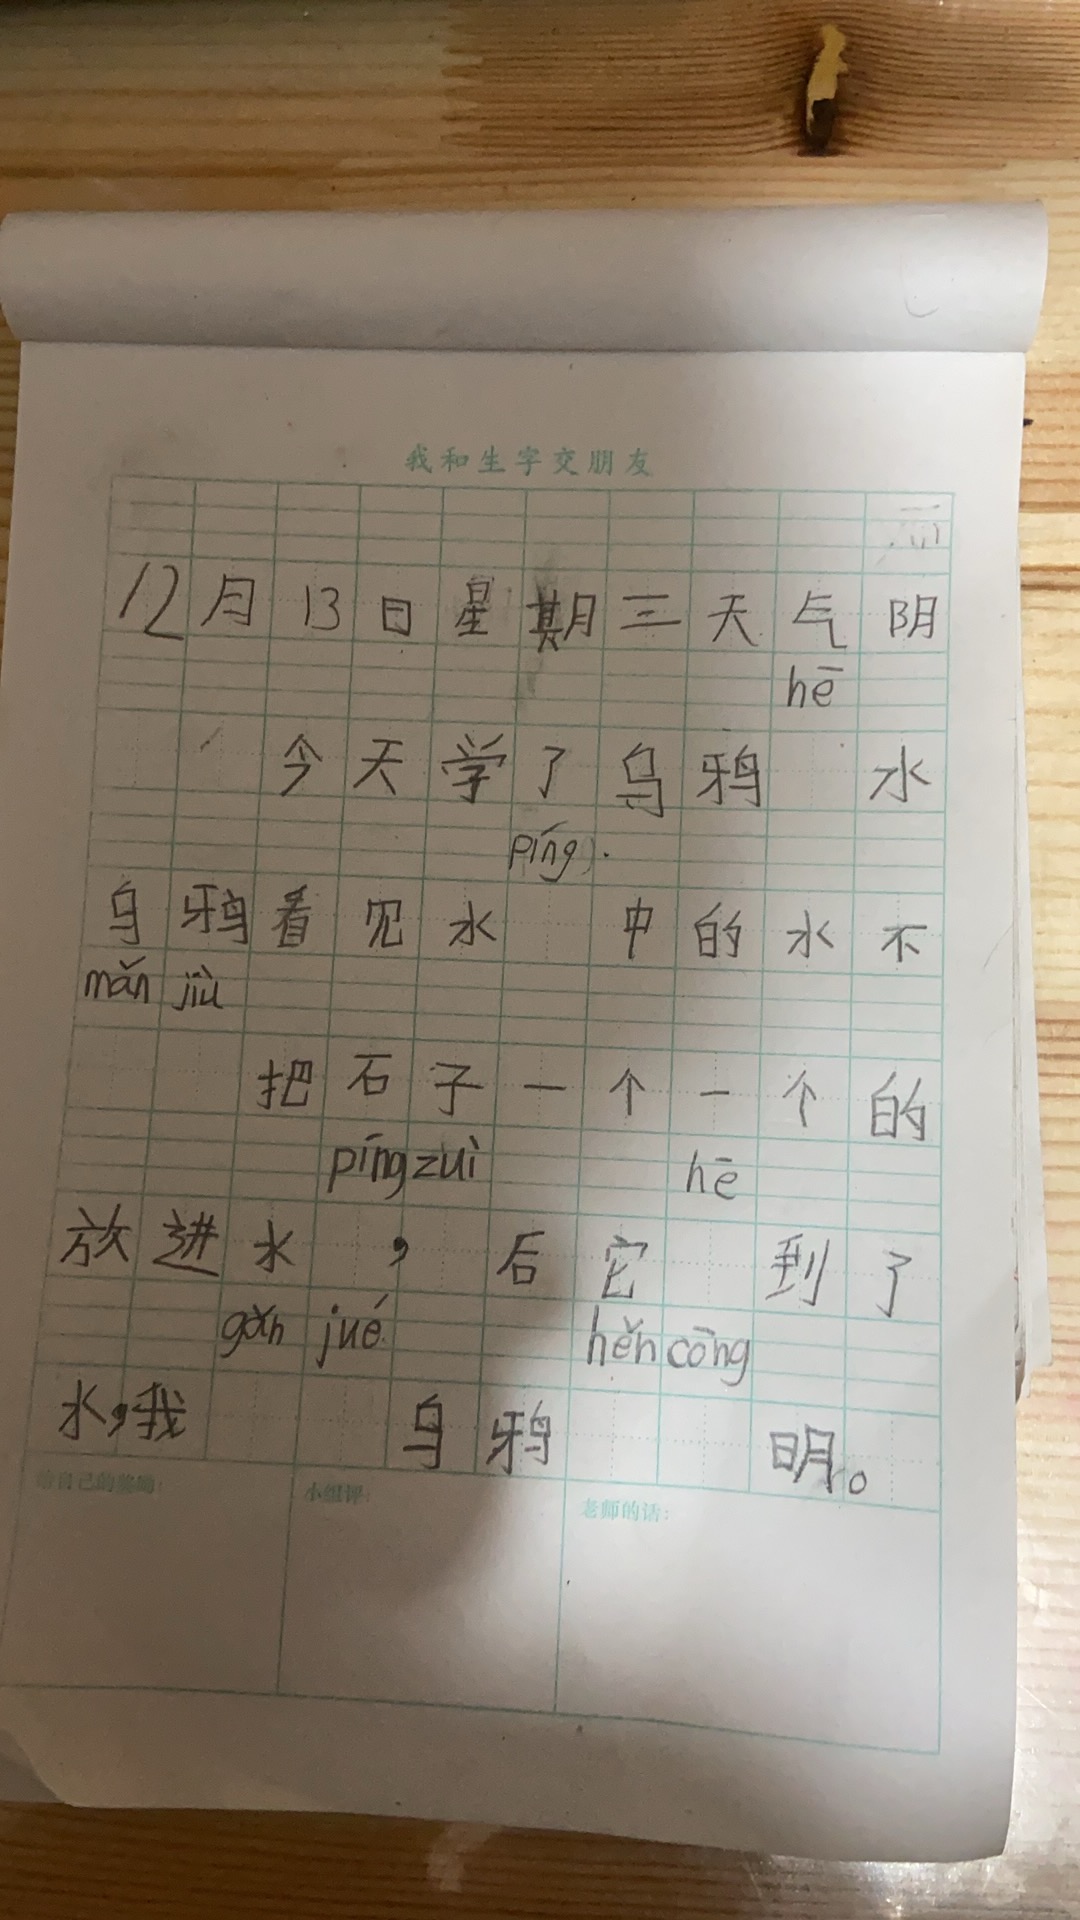 我和生字交朋友
12月13日星期三天气阴
hē
今天学了乌鸦 水
píng
乌鸦看见水 中的水不
mǎn jiù
把石子一个一个的
píng zuì hē
放进水 , 后它 到了
gǎn jué hěn cōng
水,我 乌鸦 明。
给自己的奖励: 小组评: 老师的话: